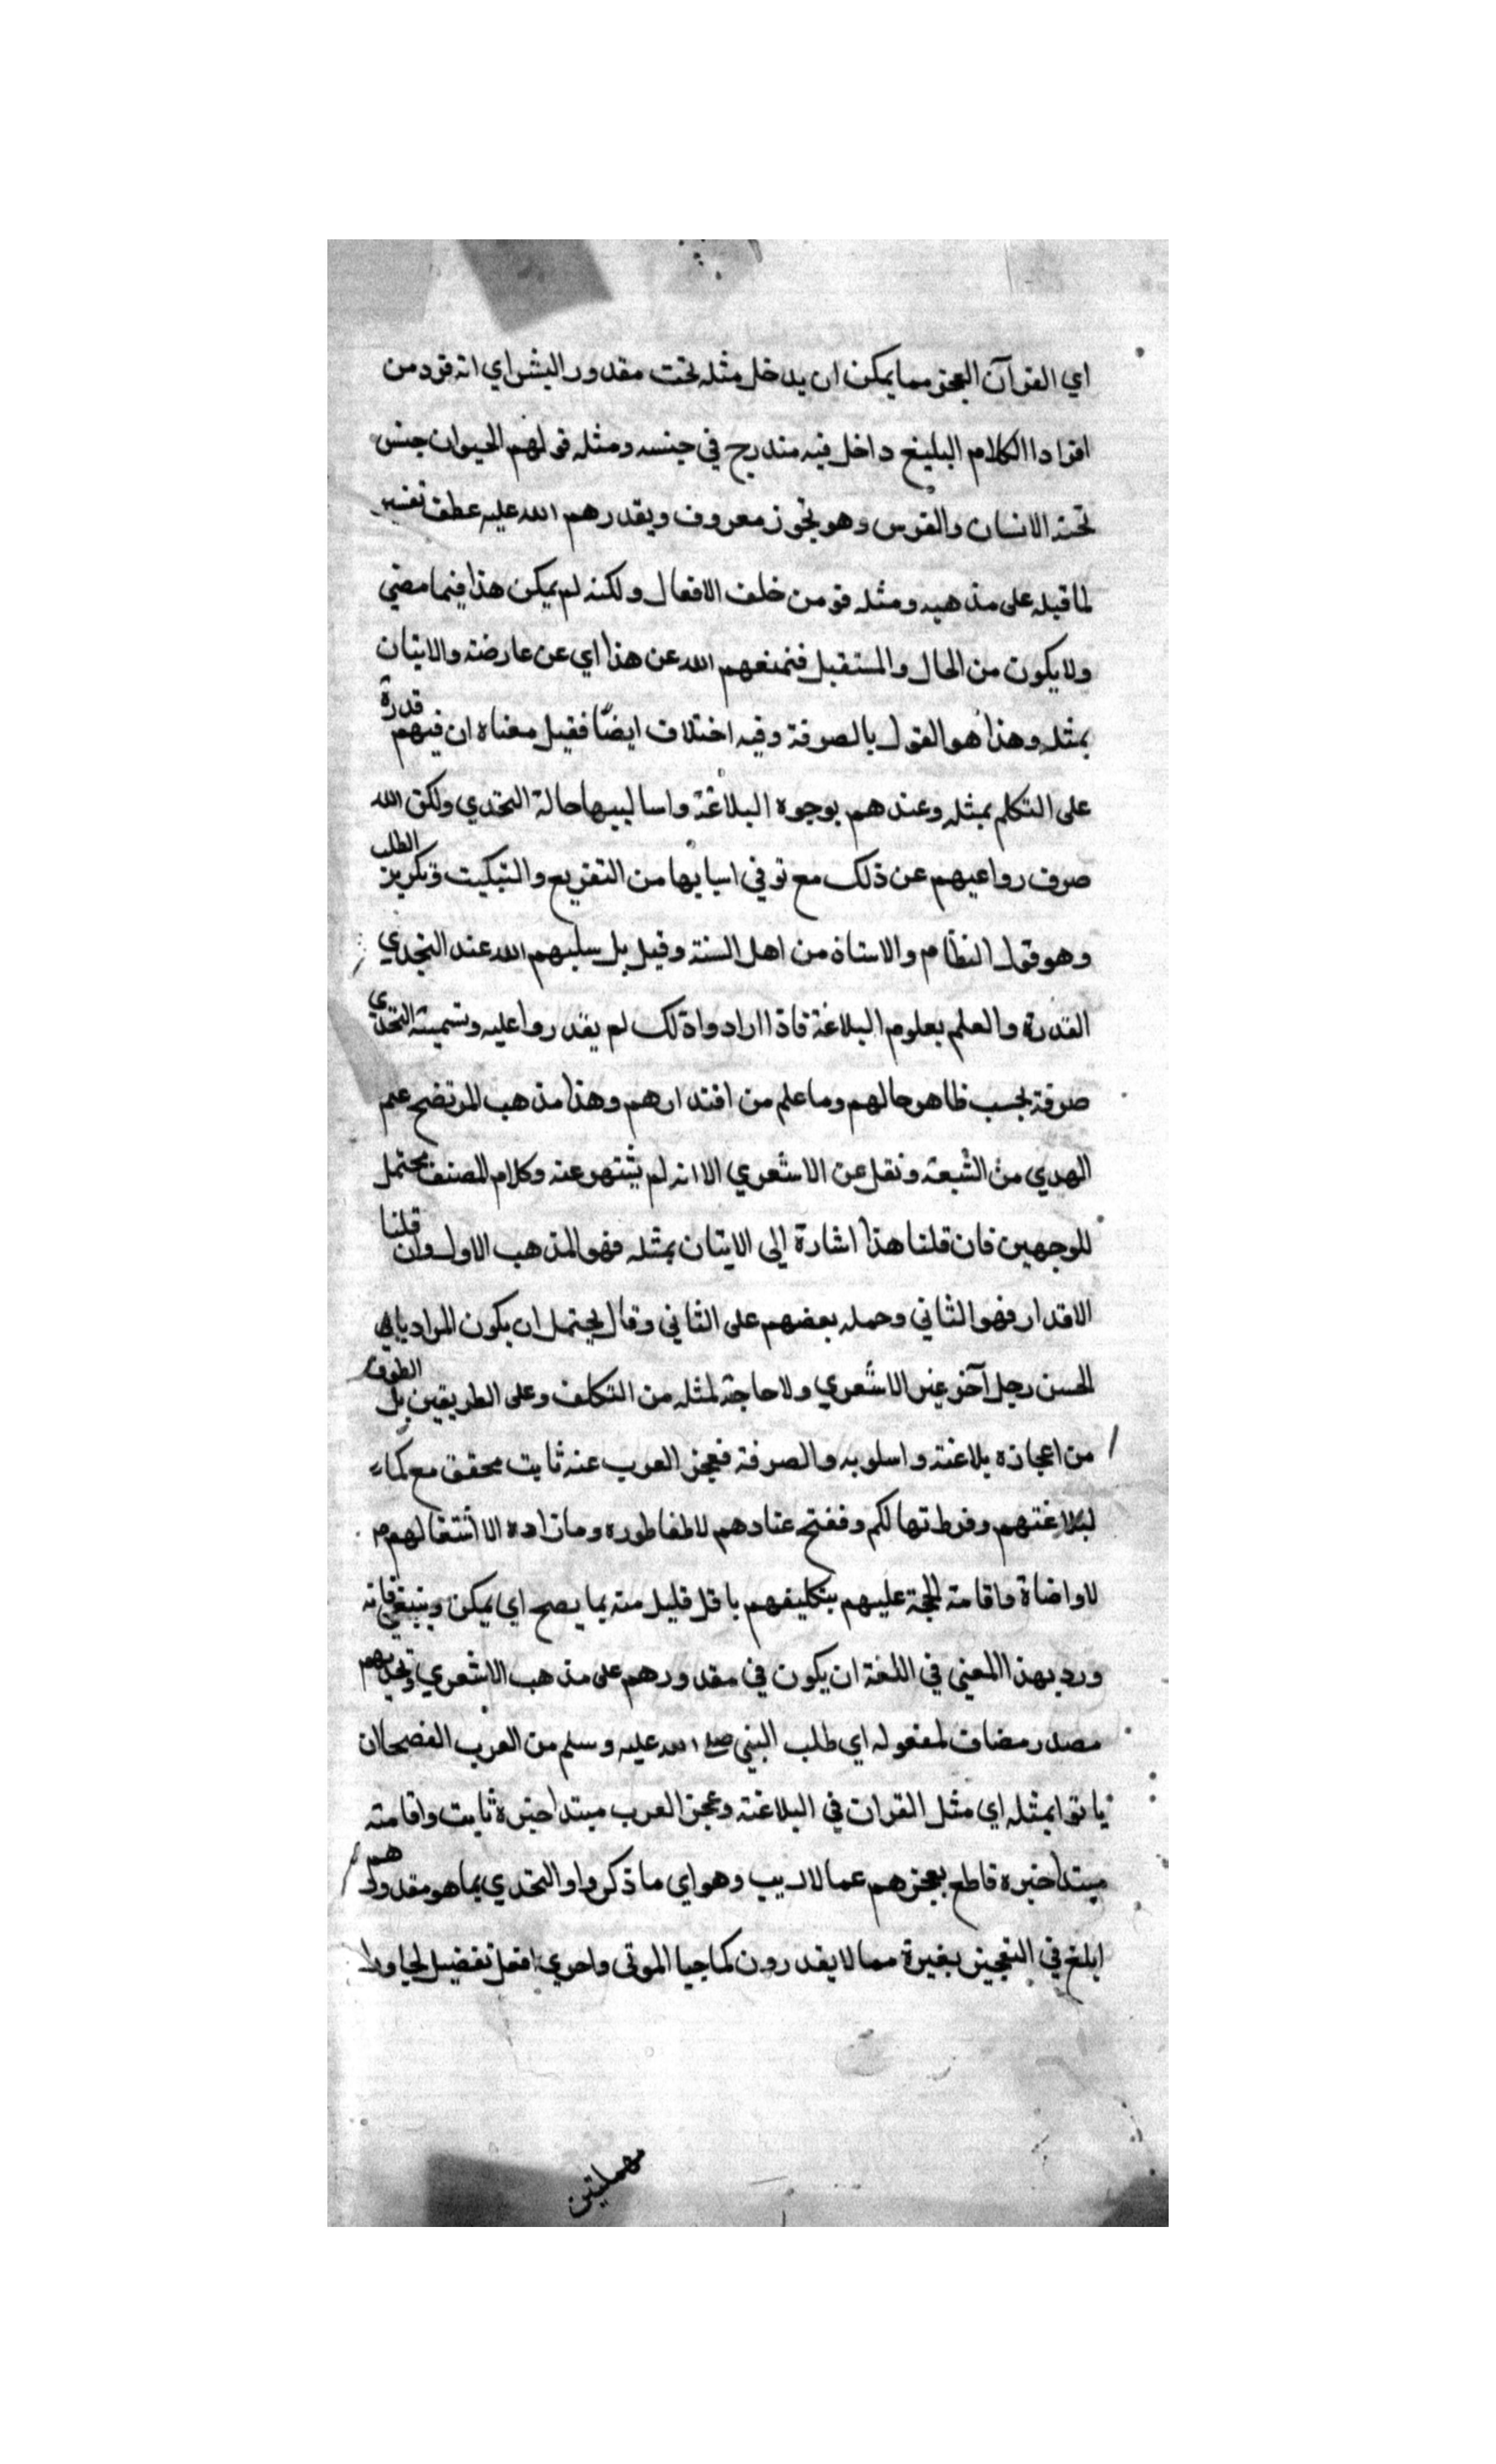 اي القرآن المعجز مما يمكن ان يدخل مثله تحت مقدور البشر اي انه فرد من
افراد الكلام البليغ داخل فيه مندرج في جنسه ومثله قولهم الحيوان جنس
تحته الانسان والفرس وهو تجوز معروف ويقدرهم الله عليه عطف تفسير
لما قبله على مذهبه ومثله قو من خلف الافعال ولكنه لم يمكن هذا فيما مضي
ولا يكون من الحال والمستقبل فنمنعهم الله عن هذا اي عن عارضته والاتيان
بمثله وهذا هو القول بالصرفة وفيه اختلاف ايضا فقيل معناه ان فيهم قدرة
على التكلم بمثله وعندهم بوجوه البلاغة واساليبها حالة التحدي ولكن الله
صرف رواعيهم عن ذلك مع توفي اسبابها من التقريع والتبكيت وتكرير الطلب
وهو قول النظام والاستاذ من اهل السنة وقيل بل سلبهم الله عند التحدي
القدرة والعلم بعلوم البلاغة فاذا ارادوا ذلك لم يقدروا عليه وتسميته التحدي
صرفة بحسب ظاهر حالهم وما علم من اقتدارهم وهذا مذهب المرتضي علم
الهدي من الشيعة ونقل عن الاشعري الا انه لم يشتهر عنه وكلام المصنف محتمل
للوجهين فان قلنا هذا اشارة الي الاتيان بمثله فهو المذهب الاول وان قلنا
الاقدار فهو الثاني وحمله بعضهم على الثاني وقال يحتمل ان يكون المراد بابي
الحسن رجل آخر غير الاشعري ولا حاجة لمثله من التكلف وعلى الطريقين بل الطرق
من اعجازه بلاغته واسلوبه والصرفة فعجز العرب عنه ثابت محقق مع كمال
لبلاغتهم وفرط تهالكم وفقتح عنادهم لاطفا طوره وما زاده الا اشتغالهم
لاواضاة واقامة الحجة عليهم بتكليفهم باقل قليل منه بما يصح اي يمكن وينبغي فانه
ورد بهذا المعني في اللغة ان يكون في مقدورهم على مذهب الاشعري وتحديهم
مصدر مضاف لمفعوله اي طلب النبي صلى الله عليه وسلم من العرب الفصحا ان
ياتوا بمثله اي مثل القران في البلاغة وعجز العرب مبتدا خبره ثابت واقامته
مبتدا خبره قاطع بعجزهم عما لا ريب وهو اي ما ذكر واو التحدي بما هو مقدورهم
ابلغ في التعجيز بغيرة مما لا يقدرون كما حيا الموتى واحري افعل تفضيل
مهملتين